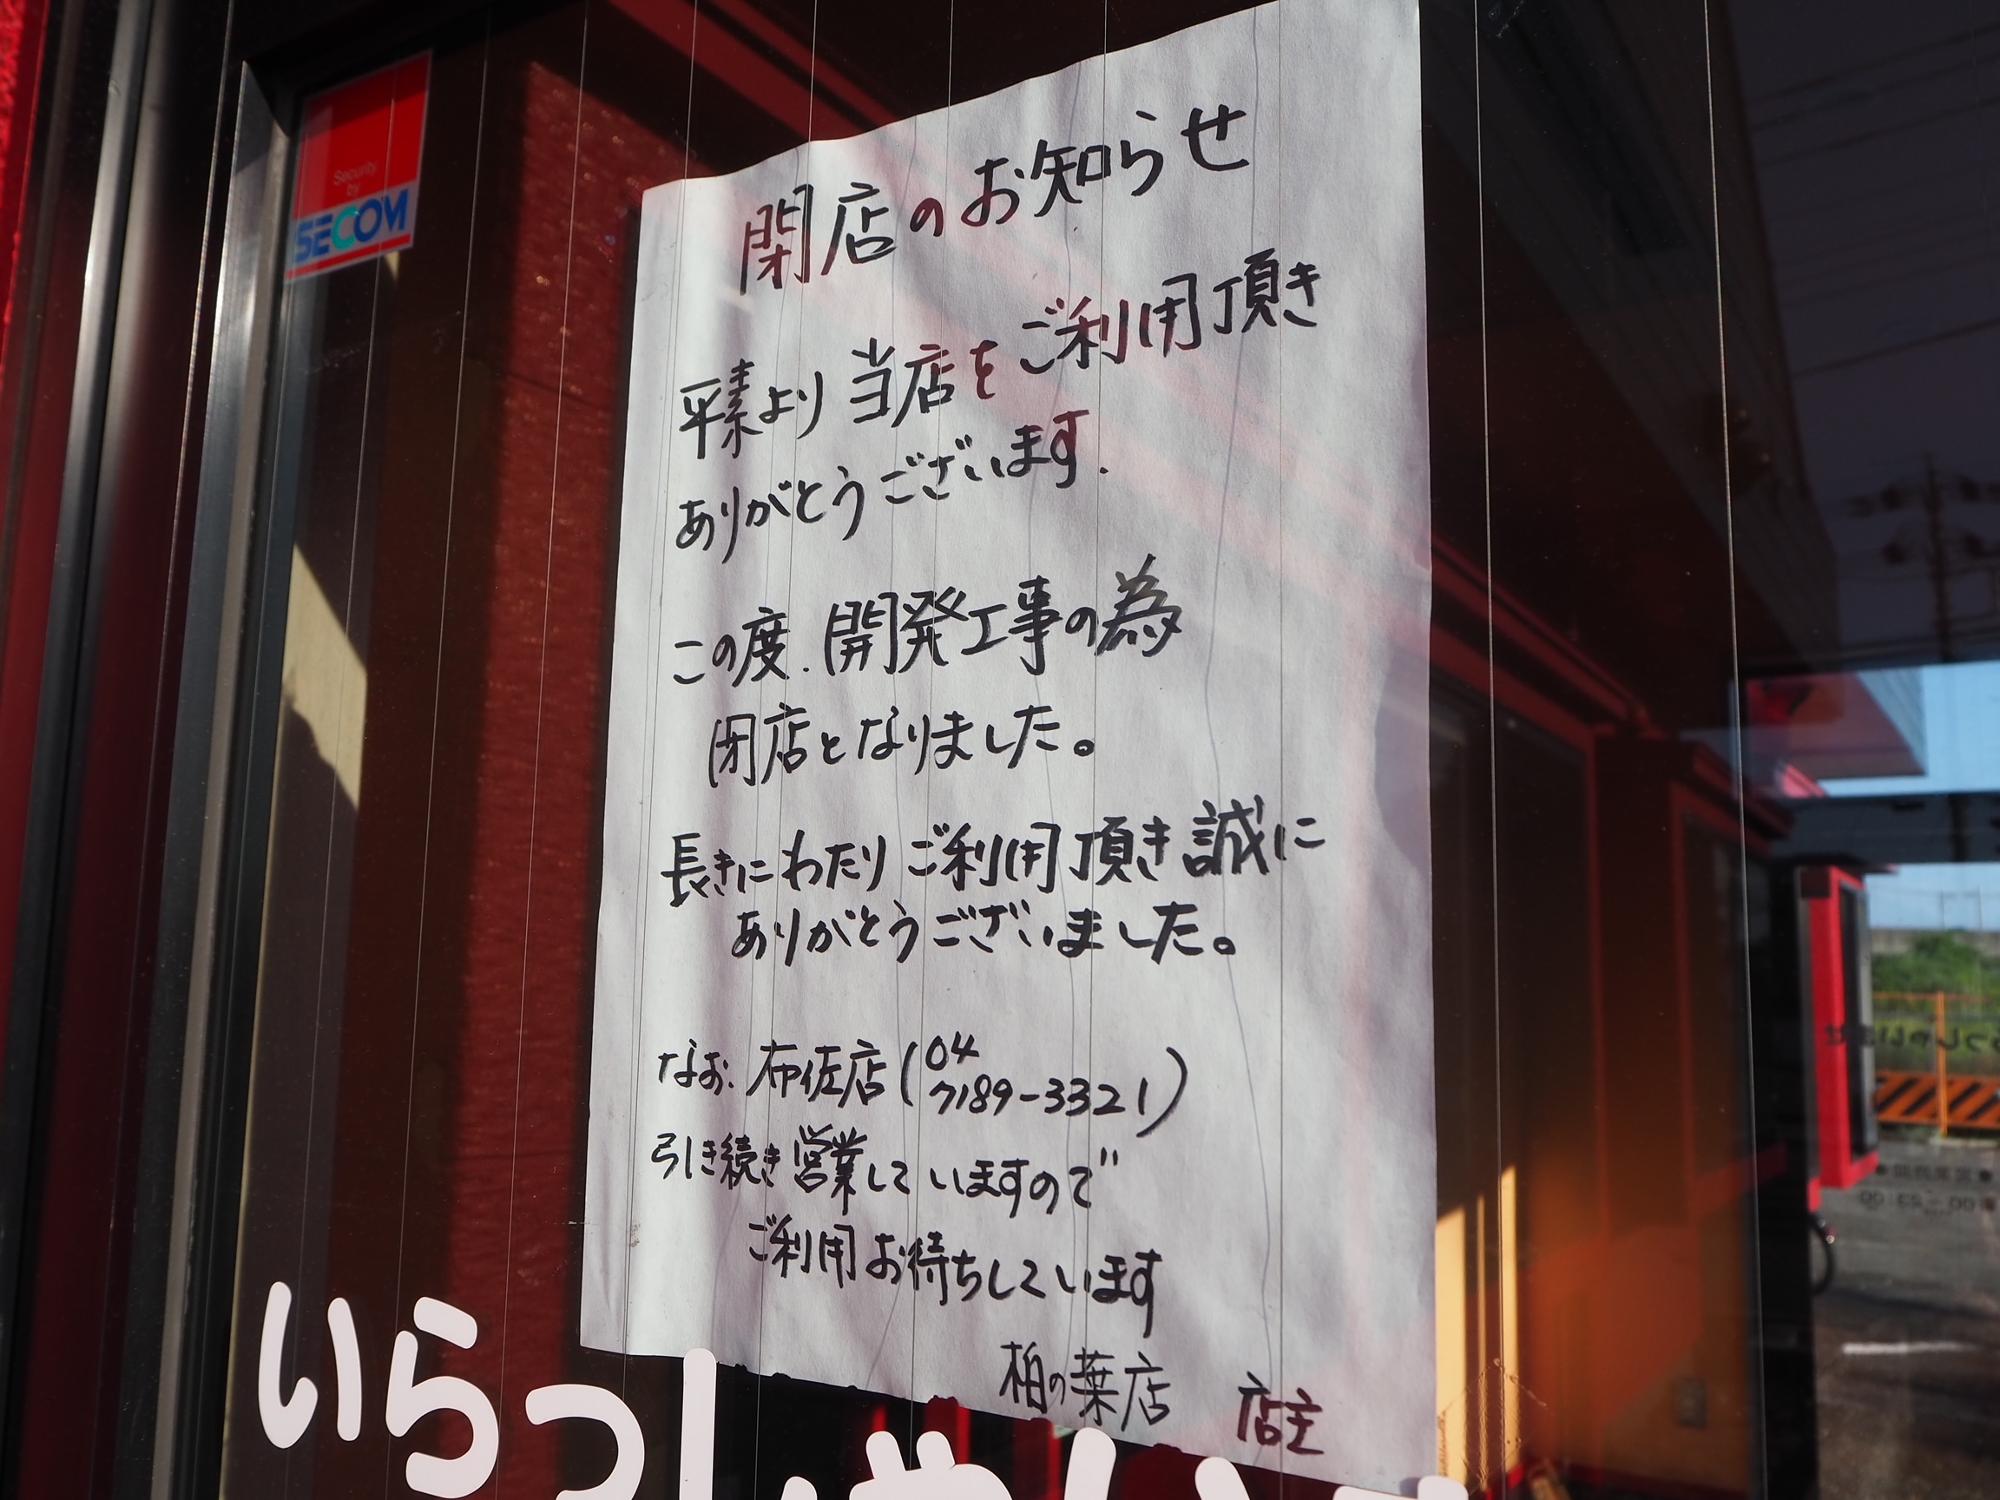 Security
by
SECOM
閉店のお知らせ
平素より当店をご利用頂き
ありがとうございます.
この度.開発工事の為
閉店となりました。
長きにわたりご利用頂き誠に
ありがとうございました。
なお.布佐店(04
7189-3321)
引き続き営業していますので
ご利用お待ちしています
柏の葉店 店主
いらっしゃいませ